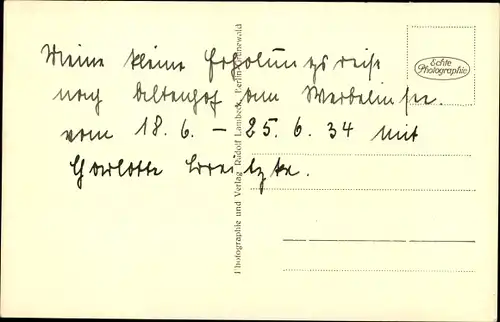 Meine kleine Erholungsreise
nach Altenhof am Werbellinsee.
vom 18.6. – 25.6.34 mit
Charlotte
Echte
Photographie
Photographie und Verlag Rudolf Lambeck, Berlin-Grunewald